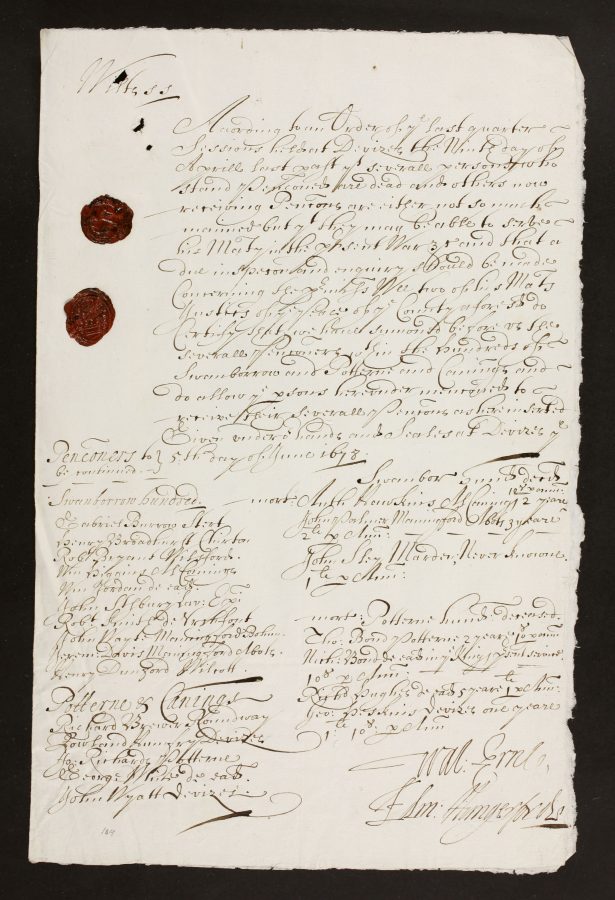 Wiltes ss
According to an Order of ye last quarter
Sessions held at Devizes the Ninth day of
Aprill last past yt severall persons who
stand Penconed are dead and others now
receiving Pencons are either not so much
maimed but yt they may be able to serve
his Maty in the psent War and that a
due inspeccon and enquiry should be made
Concerning the Wee two of his Mats
Justices of the peace of ye County aforesd do
Certify that we have summoned before us the
severall Penconers in the Hundreds of
Swanborrow and Potterne and Canings and
do allow ye psons hereunder menconed to
receive their severall Pencons as here inserted
Given under or hands and Seales at Devizes ye
5th day of June 1678
Penconers to
be continued
Swanborrow hundred
Gabriel Burrow Stert
Henry Broadhurst Chirton
Robt Bryant Wilsford
Wm
Wm Jordan de ead
John
Robt Smith de Vrchfont
John Manningford Bohun
Davis Manningford Abots
Henry Dunford Wilcott
Potterne & Canings
Richard Brewer Roundway
Rowland Devizes
Jo: Richards Potterne
George White de ead
John Wyatt Devizes
mort Swanbor hund decd
Anth: Hawkins 2 yeare
John Palmer Manningford Abts 3 yeare
2li p Anm:
John Marden, Never knowne
1li p Anm:
mort: Potterne hund deceased
Tho: Bond Potterne 2 yeare
Nich: Bond de ead
10s p Anm:
Richd Hughes de ead 5 yeare 1li p Anm:
Geo: Devizes one yeare
1li 10s: p Anm:
Wal: Ernle
Edm: Hungerford